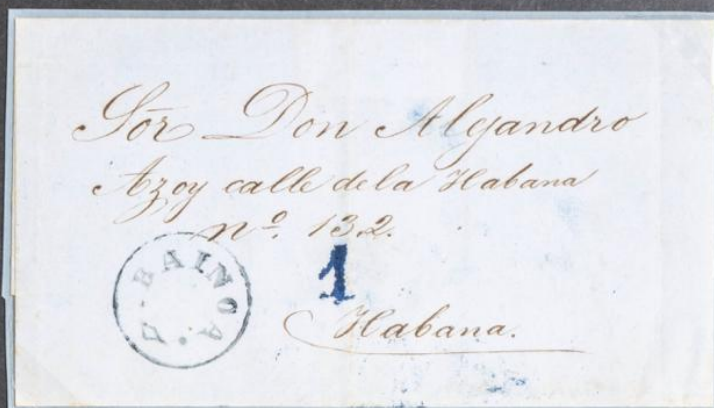 Sõr Don Alejandro
Azoy calle de la Habana
nº. 132.
BAINOA
1
Habana.